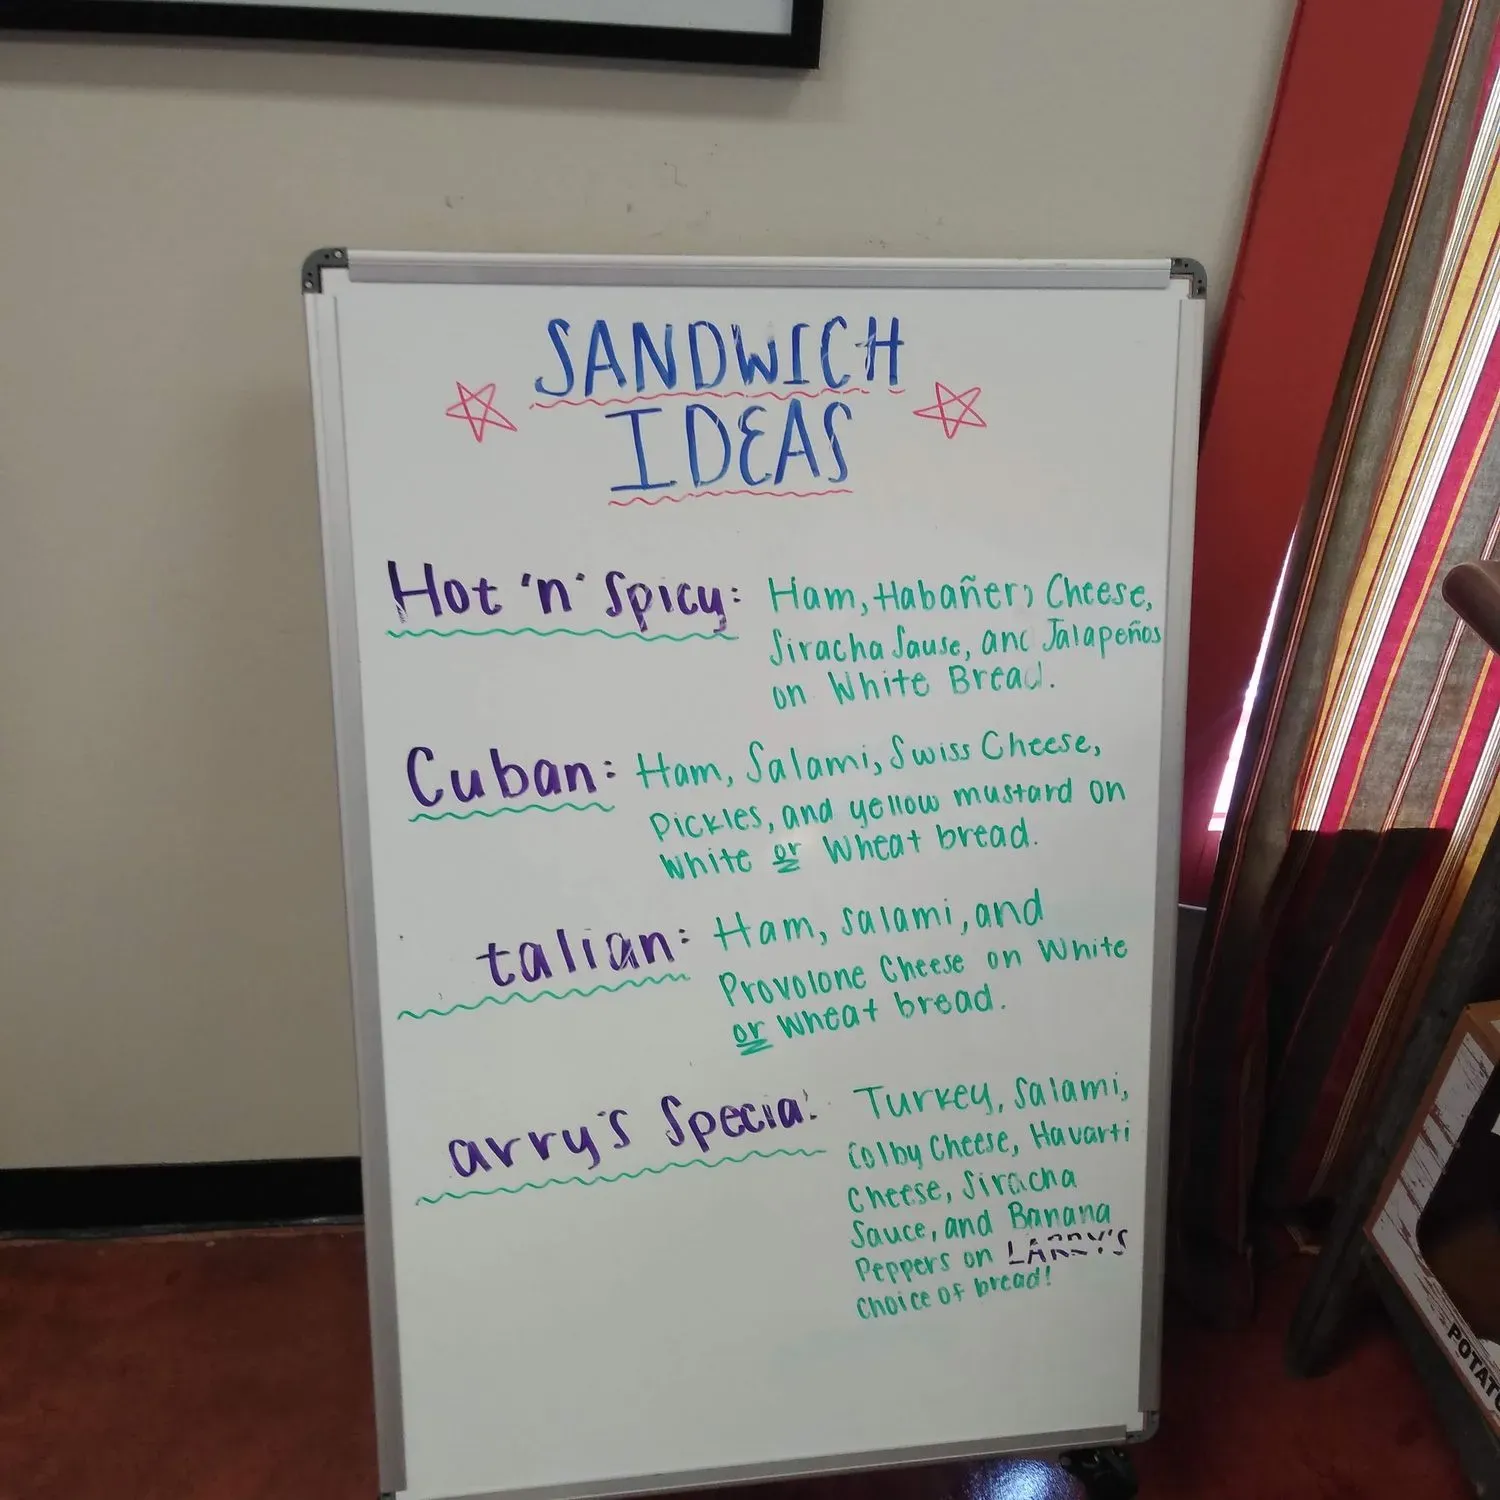 SANDWICH
IDEAS
Hot 'n' Spicy: Ham, Habañero Cheese,
Siracha Sause, and Jalapeños
on White Bread.
Cuban: Ham, Salami, Swiss Cheese,
Pickles, and yellow mustard on
White or Wheat bread.
talian: Ham, salami, and
Provolone Cheese on White
or Wheat bread.
arry's Special: Turkey, Salami,
Colby Cheese, Havarti
Cheese, Siracha
Sauce, and Banana
Peppers on LARRY'S
choice of bread!
POTATO